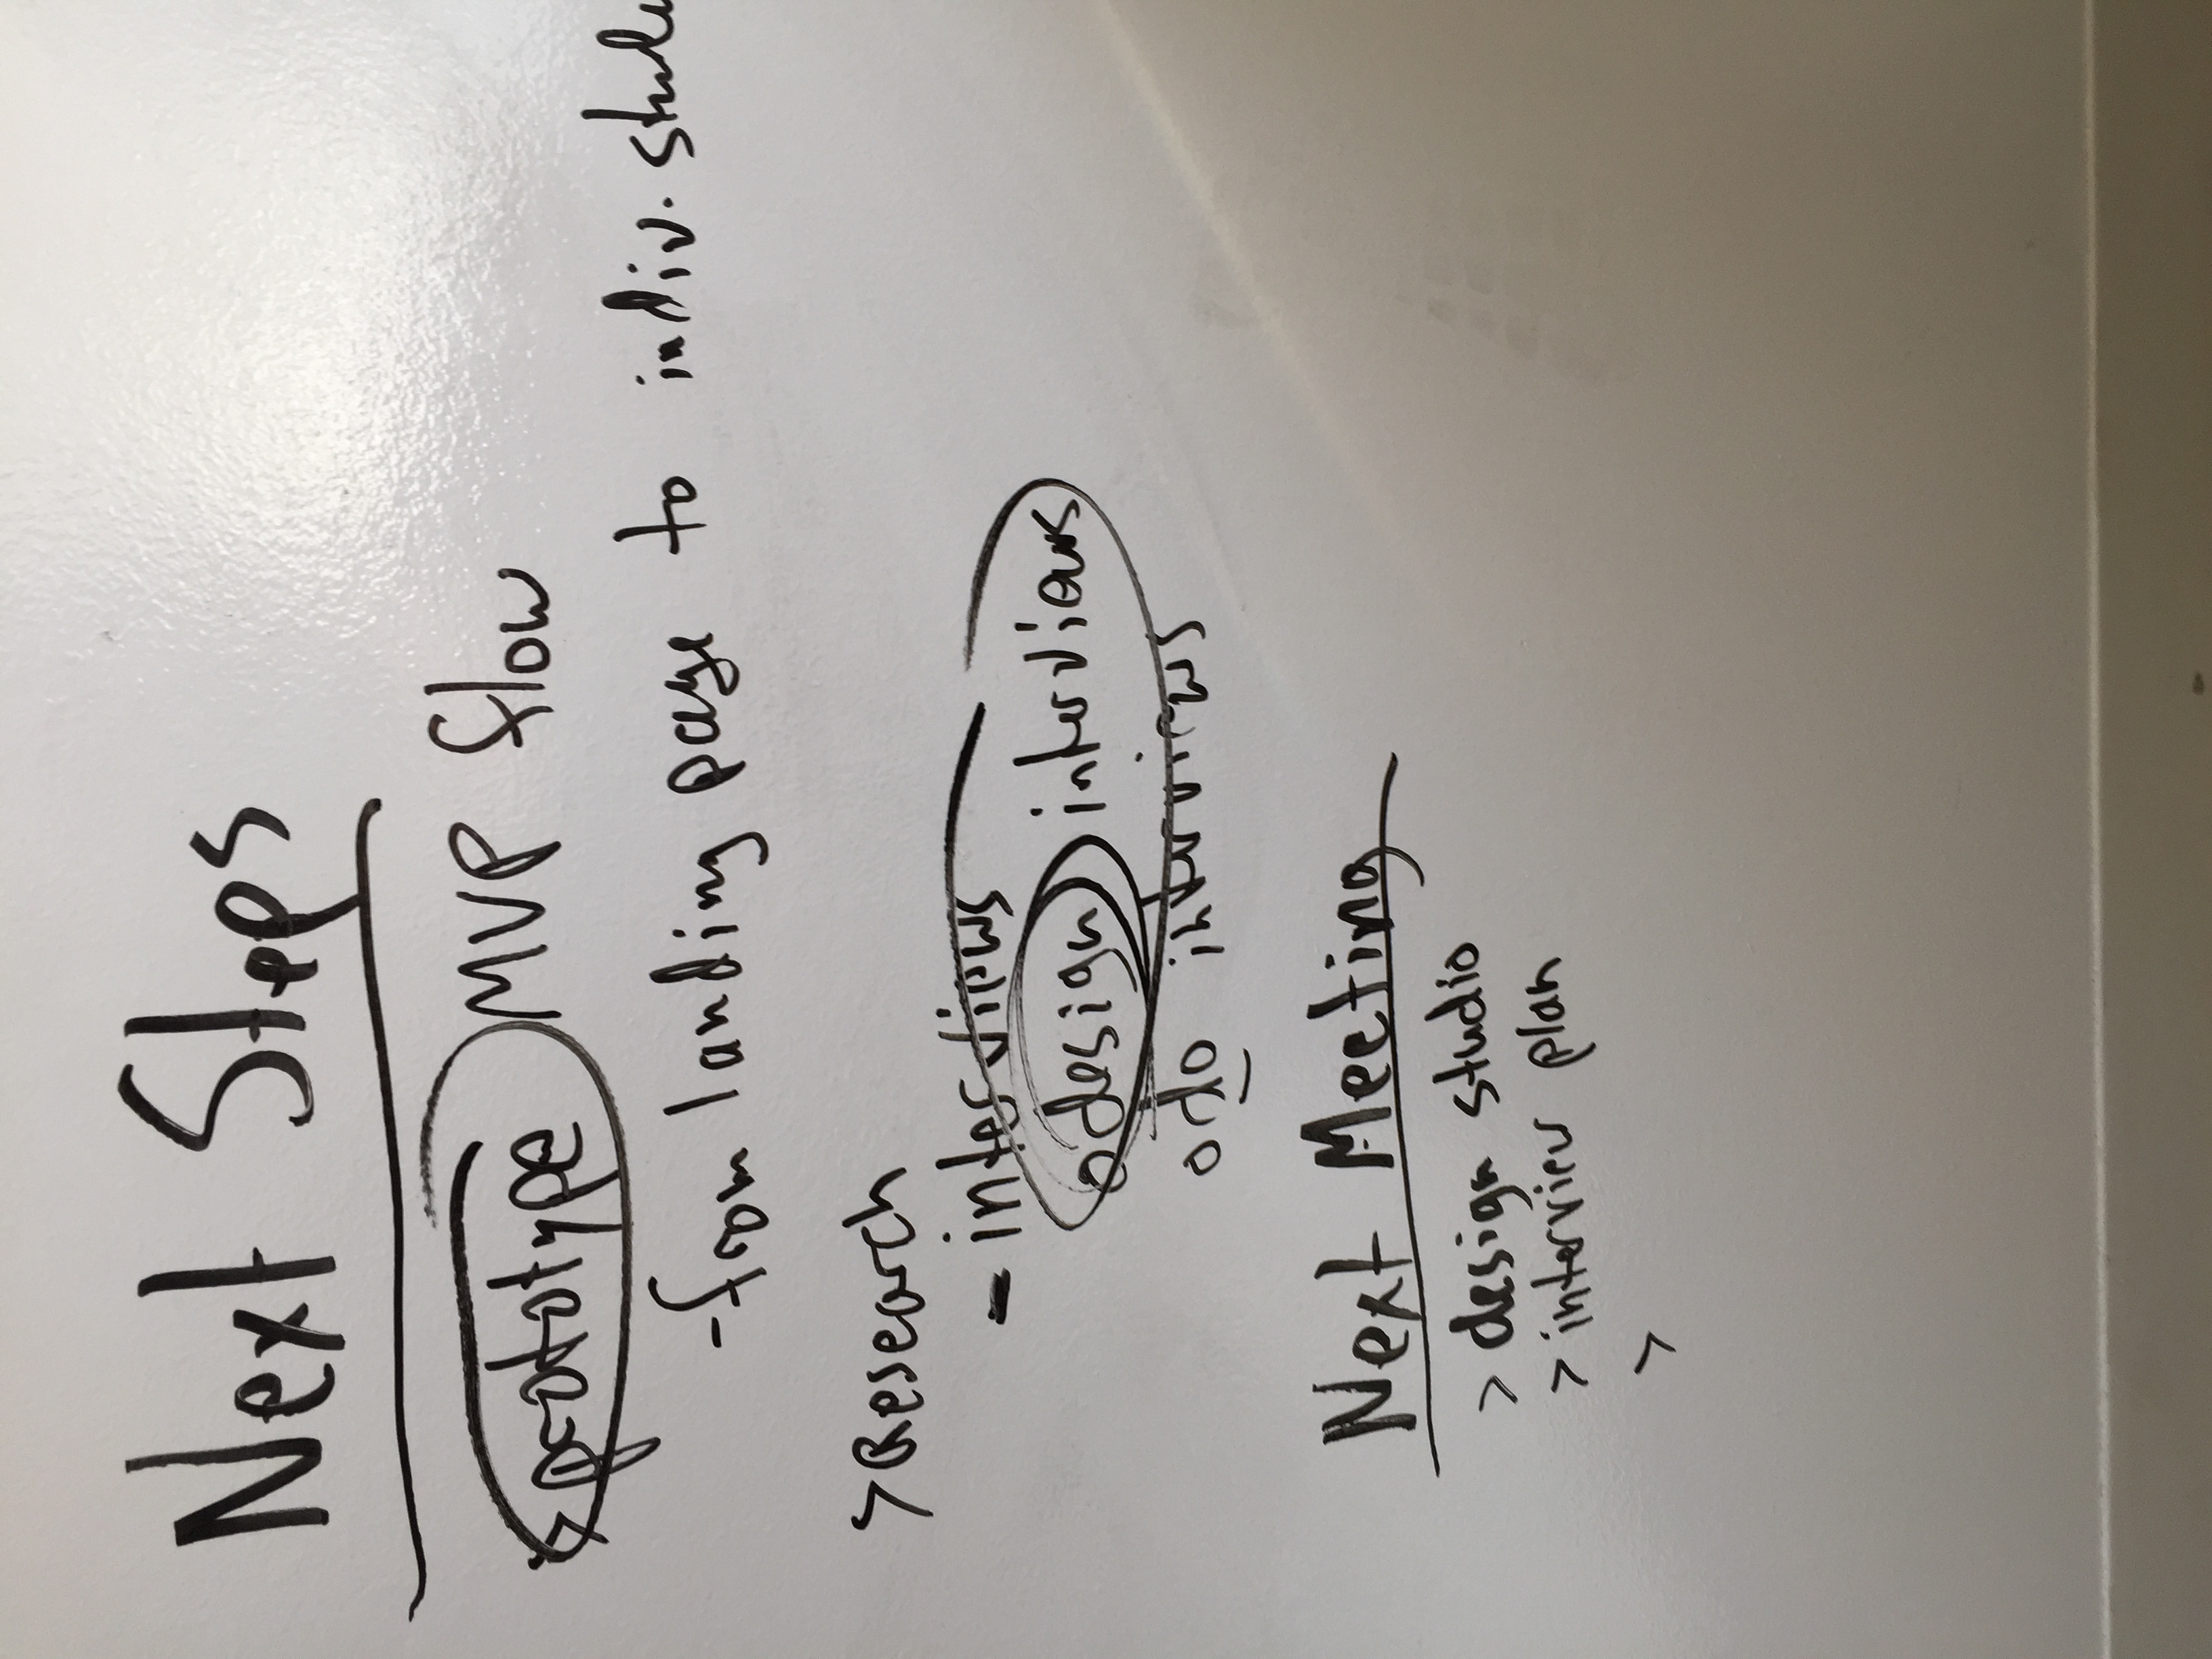 Next Steps
> prototype MVP flow
- from landing page to indiv.
> Research
- interviews
o design interviews
o do interviews
Next Meeting
> design studio
> interview plan
>